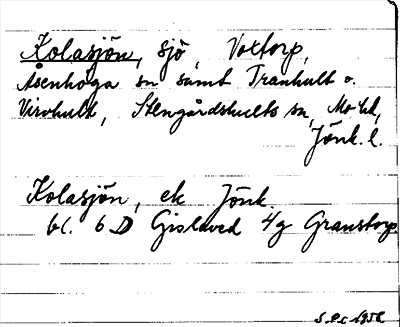 Kolasjön, sjö, Voxtorp,
Åsenhöga sn samt Tranhult o.
Virshult, Stengårdshults sn, Mo hd,
Jönk. l.
Kolasjön, ek Jönk.
bl. 6 D Gislaved 4g Granstorp.
1958